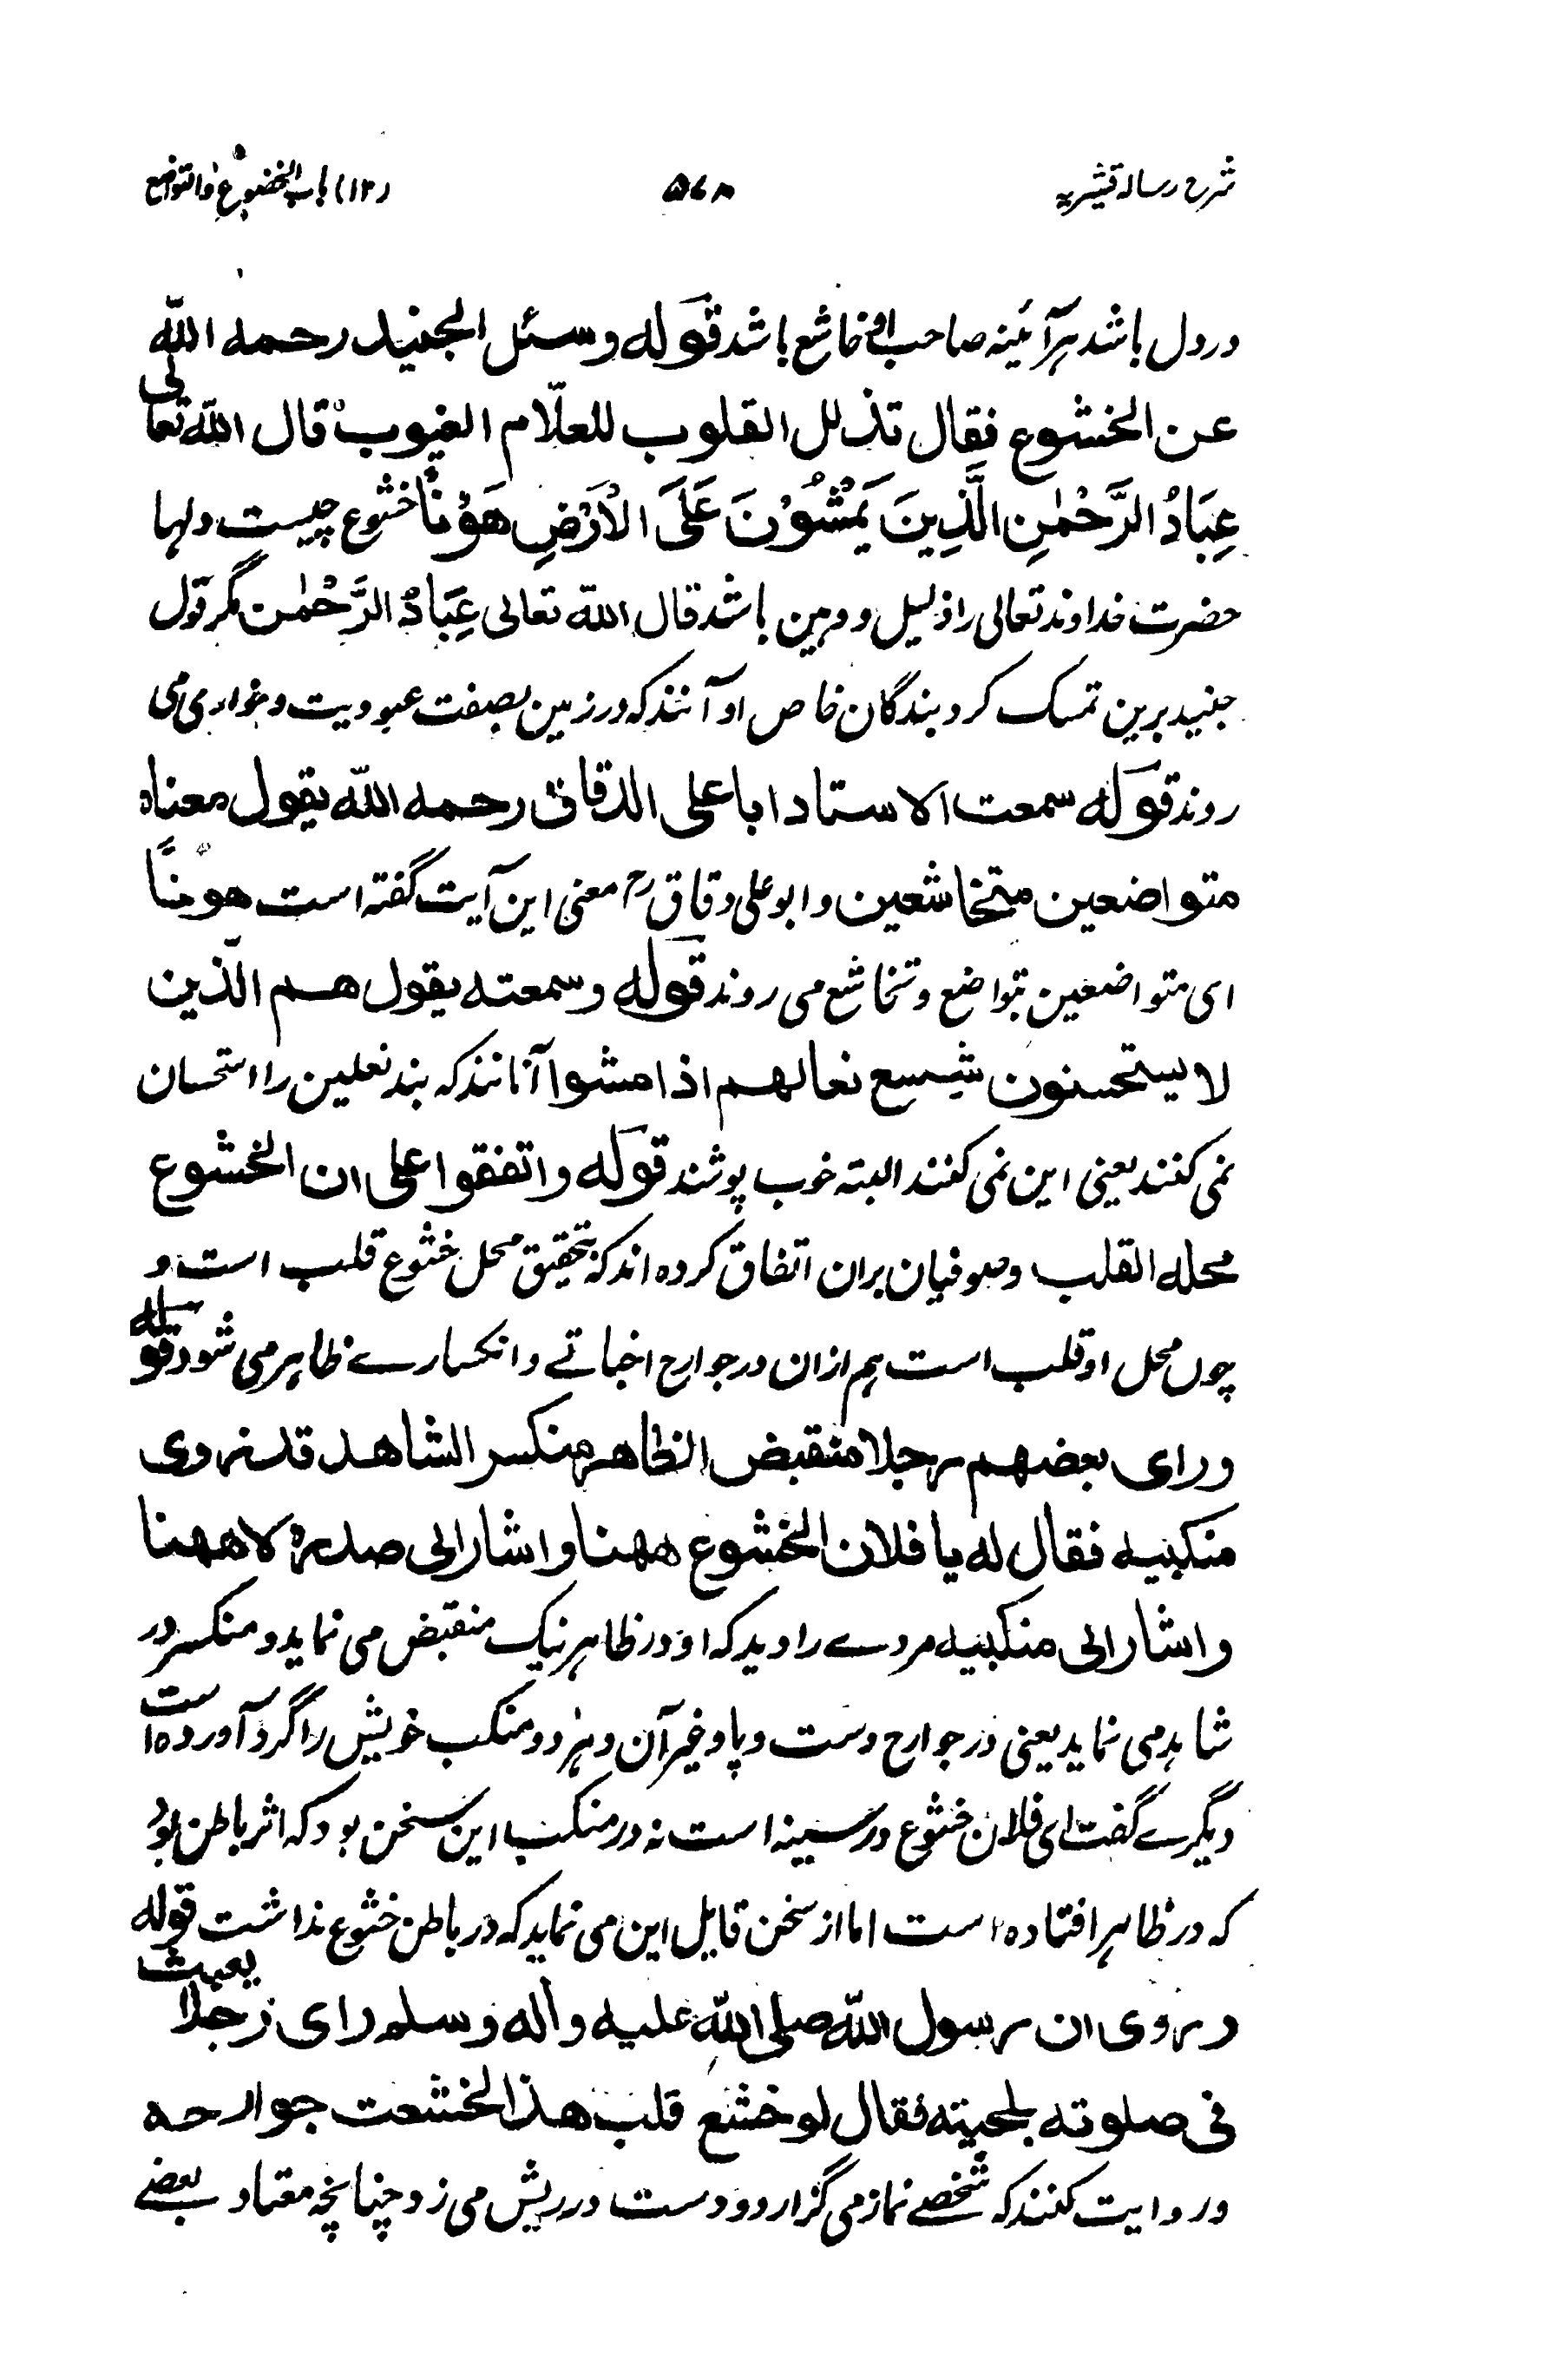 شرح رساله قشیریه
۵۷۸
(۱۲) باب الخضوع والتواضع
در دل باشد ہر آئینہ صاحب او خاشع باشد قوله وسئل الجنید رحمه الله
عن الخشوع فقال تذلل القلوب للعلّام الغیوب قال الله تعالی
عِبَادُ الرَّحْمٰنِ الَّذِینَ یَمْشُوْنَ عَلَی الْاَرْضِ هَوْنًا خشوع چیست دلہا
حضرت خداوند تعالی را ذلیل و مہین باشد قال الله تعالی عِبَادُ الرَّحْمٰن مگر قول
جنید برین تمسک کرد بندگان خاص او آنند که در زمین بصفت عبودیت و خواری می
روند قوله سمعت الاستاد اباعلی الدقاق رحمه الله یقول معناه
متواضعین متخاشعین و ابوعلی دقاق رح معنی این آیت گفته است هونًا
ای متواضعین بتواضع و تخاشع می روند قوله وسمعته یقول هم الّذین
لا یستحسنون شسع نعالهم اذا مشوا آنانند که بند نعلین را استحسان
نمی کنند یعنی این نمی کنند البته خوب پوشند قوله واتفقوا علی ان الخشوع
محله القلب وصوفیان بران اتفاق کرده اند که تحقیق محل خشوع قلب است و
چوں محل او قلب است ہم ازان در جوارح اخباتے و انکسارے ظاہر می شود قوله
ورای بعضهم رجلا منقبض الظاهر منکسر الشاهد قد زوی
منکبیه فقال له یا فلان الخشوع ههنا واشار الی صدره لا ههنا
واشار الی منکبیه مردے را دید که او در ظاہر نیک منقبض می نماید و منکسر در
شاہد می نماید یعنی در جوارح دست و پا و غیر آن و ہر دو منکب خویش را گرد آورده است
دیگرے گفت ای فلان خشوع در سینه است نه در منکب این سخن بود که اثر باطن بود
که در ظاہر افتاده است اما از سخن قایل این می نماید که در باطن خشوع نداشت قوله
وروی ان رسول الله صلی الله علیه وآله وسلم رای رجلا یعبث
فی صلوته بلحیته فقال لو خشع قلب هذا لخشعت جوارحه
و روایت کنند که شخصے نماز می گزارد و دست در ریش می زد چنانچه معتاد بعضے